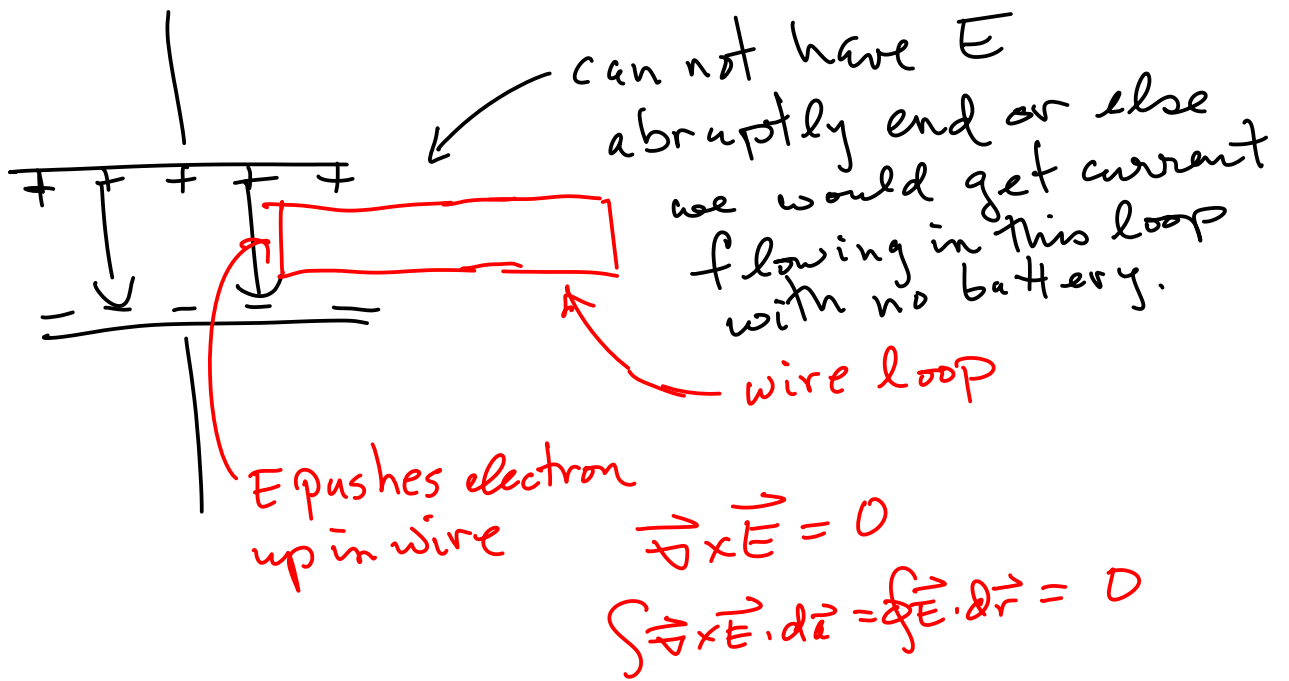 can not have E
abruptly end or else
we would get current
flowing in this loop
with no battery.
+ + + + +
wire loop
E pushes electron
up in wire
∇⃗ × E⃗ = 0
∫ ∇⃗ × E⃗ · da⃗ = ∮ E⃗ · dr⃗ = 0